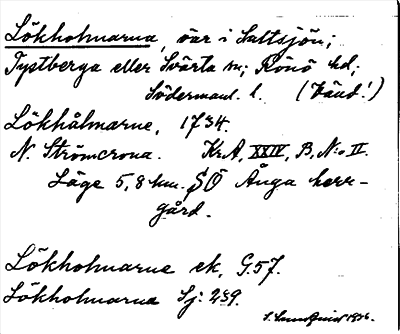 Lökholmarna, öar i Saltsjön;
Tystberga eller Svärta sn; Rönö hd;
Södermanl. l. (Vänd!)
Lökhålmarne, 1734.
N. Strömcrona. Kr.A, XXIV, B, No II.
Läge 5,8 km. SÖ Ånga herr-
gård.
Lökholmarne ek. G.57.
Lökholmarna Sj: 239.
1936.